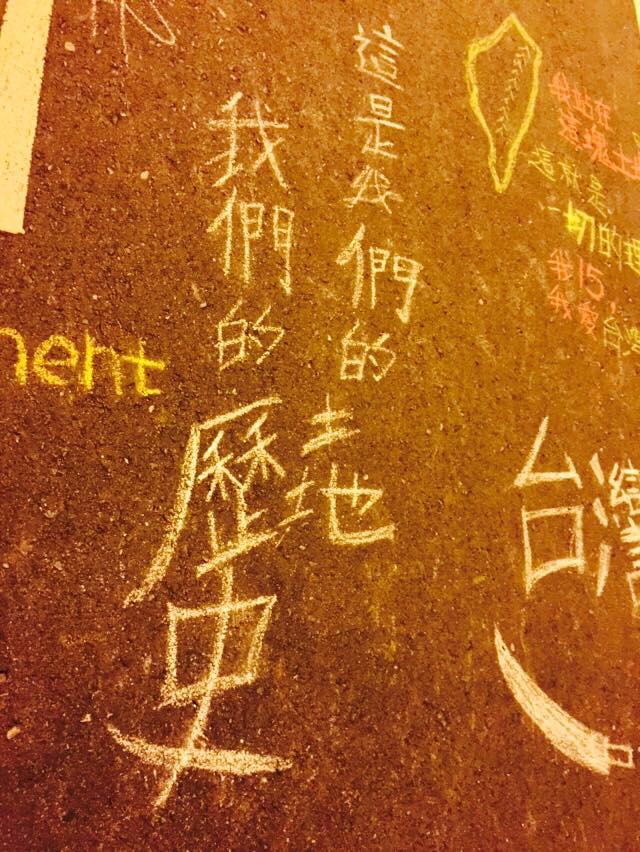 這是我們的土地
我們的歷史
我站在
這塊土
這就是
一切的理
我15,
我愛台灣
台灣
nent